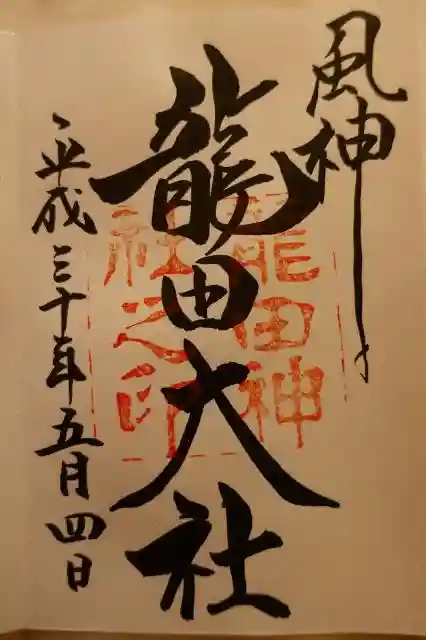 風神
龍田大社
龍田神
社之印
平成三十年五月四日